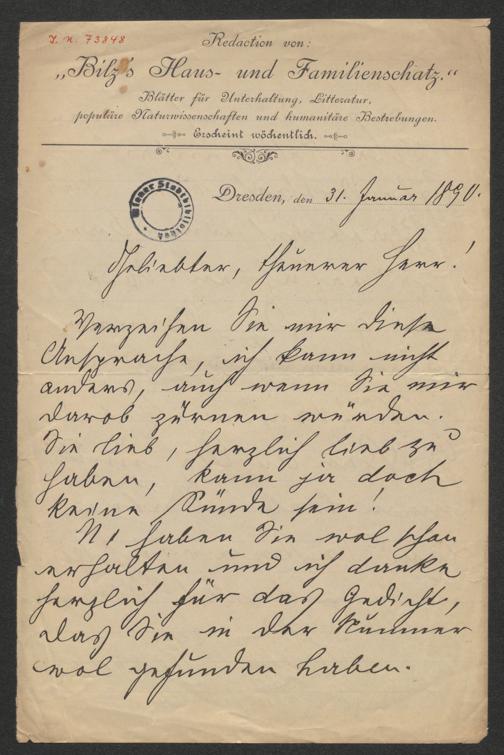 J. N. 73848
Redaction von:
„Bilz's Haus- und Familienschatz.“
Blätter für Unterhaltung, Litteratur,
populäre Naturwissenschaften und humanitäre Bestrebungen.
Erscheint wöchentlich.
Wiener Stadtbibliothek
Dresden, den 31. Januar 1890.
Geliebter, theuerer Herr!
Verzeihen Sie mir diese
Ansprache, ich kann nicht
anders, auch wenn Sie mir
darob zürnen würden.
Sie lieb, herzlich lieb zu
haben, kann ja doch
keine Sünde sein!
N 1 haben Sie wol schon
erhalten und ich danke
herzlich für das Gedicht,
das Sie in der Nummer
wol gefunden haben.